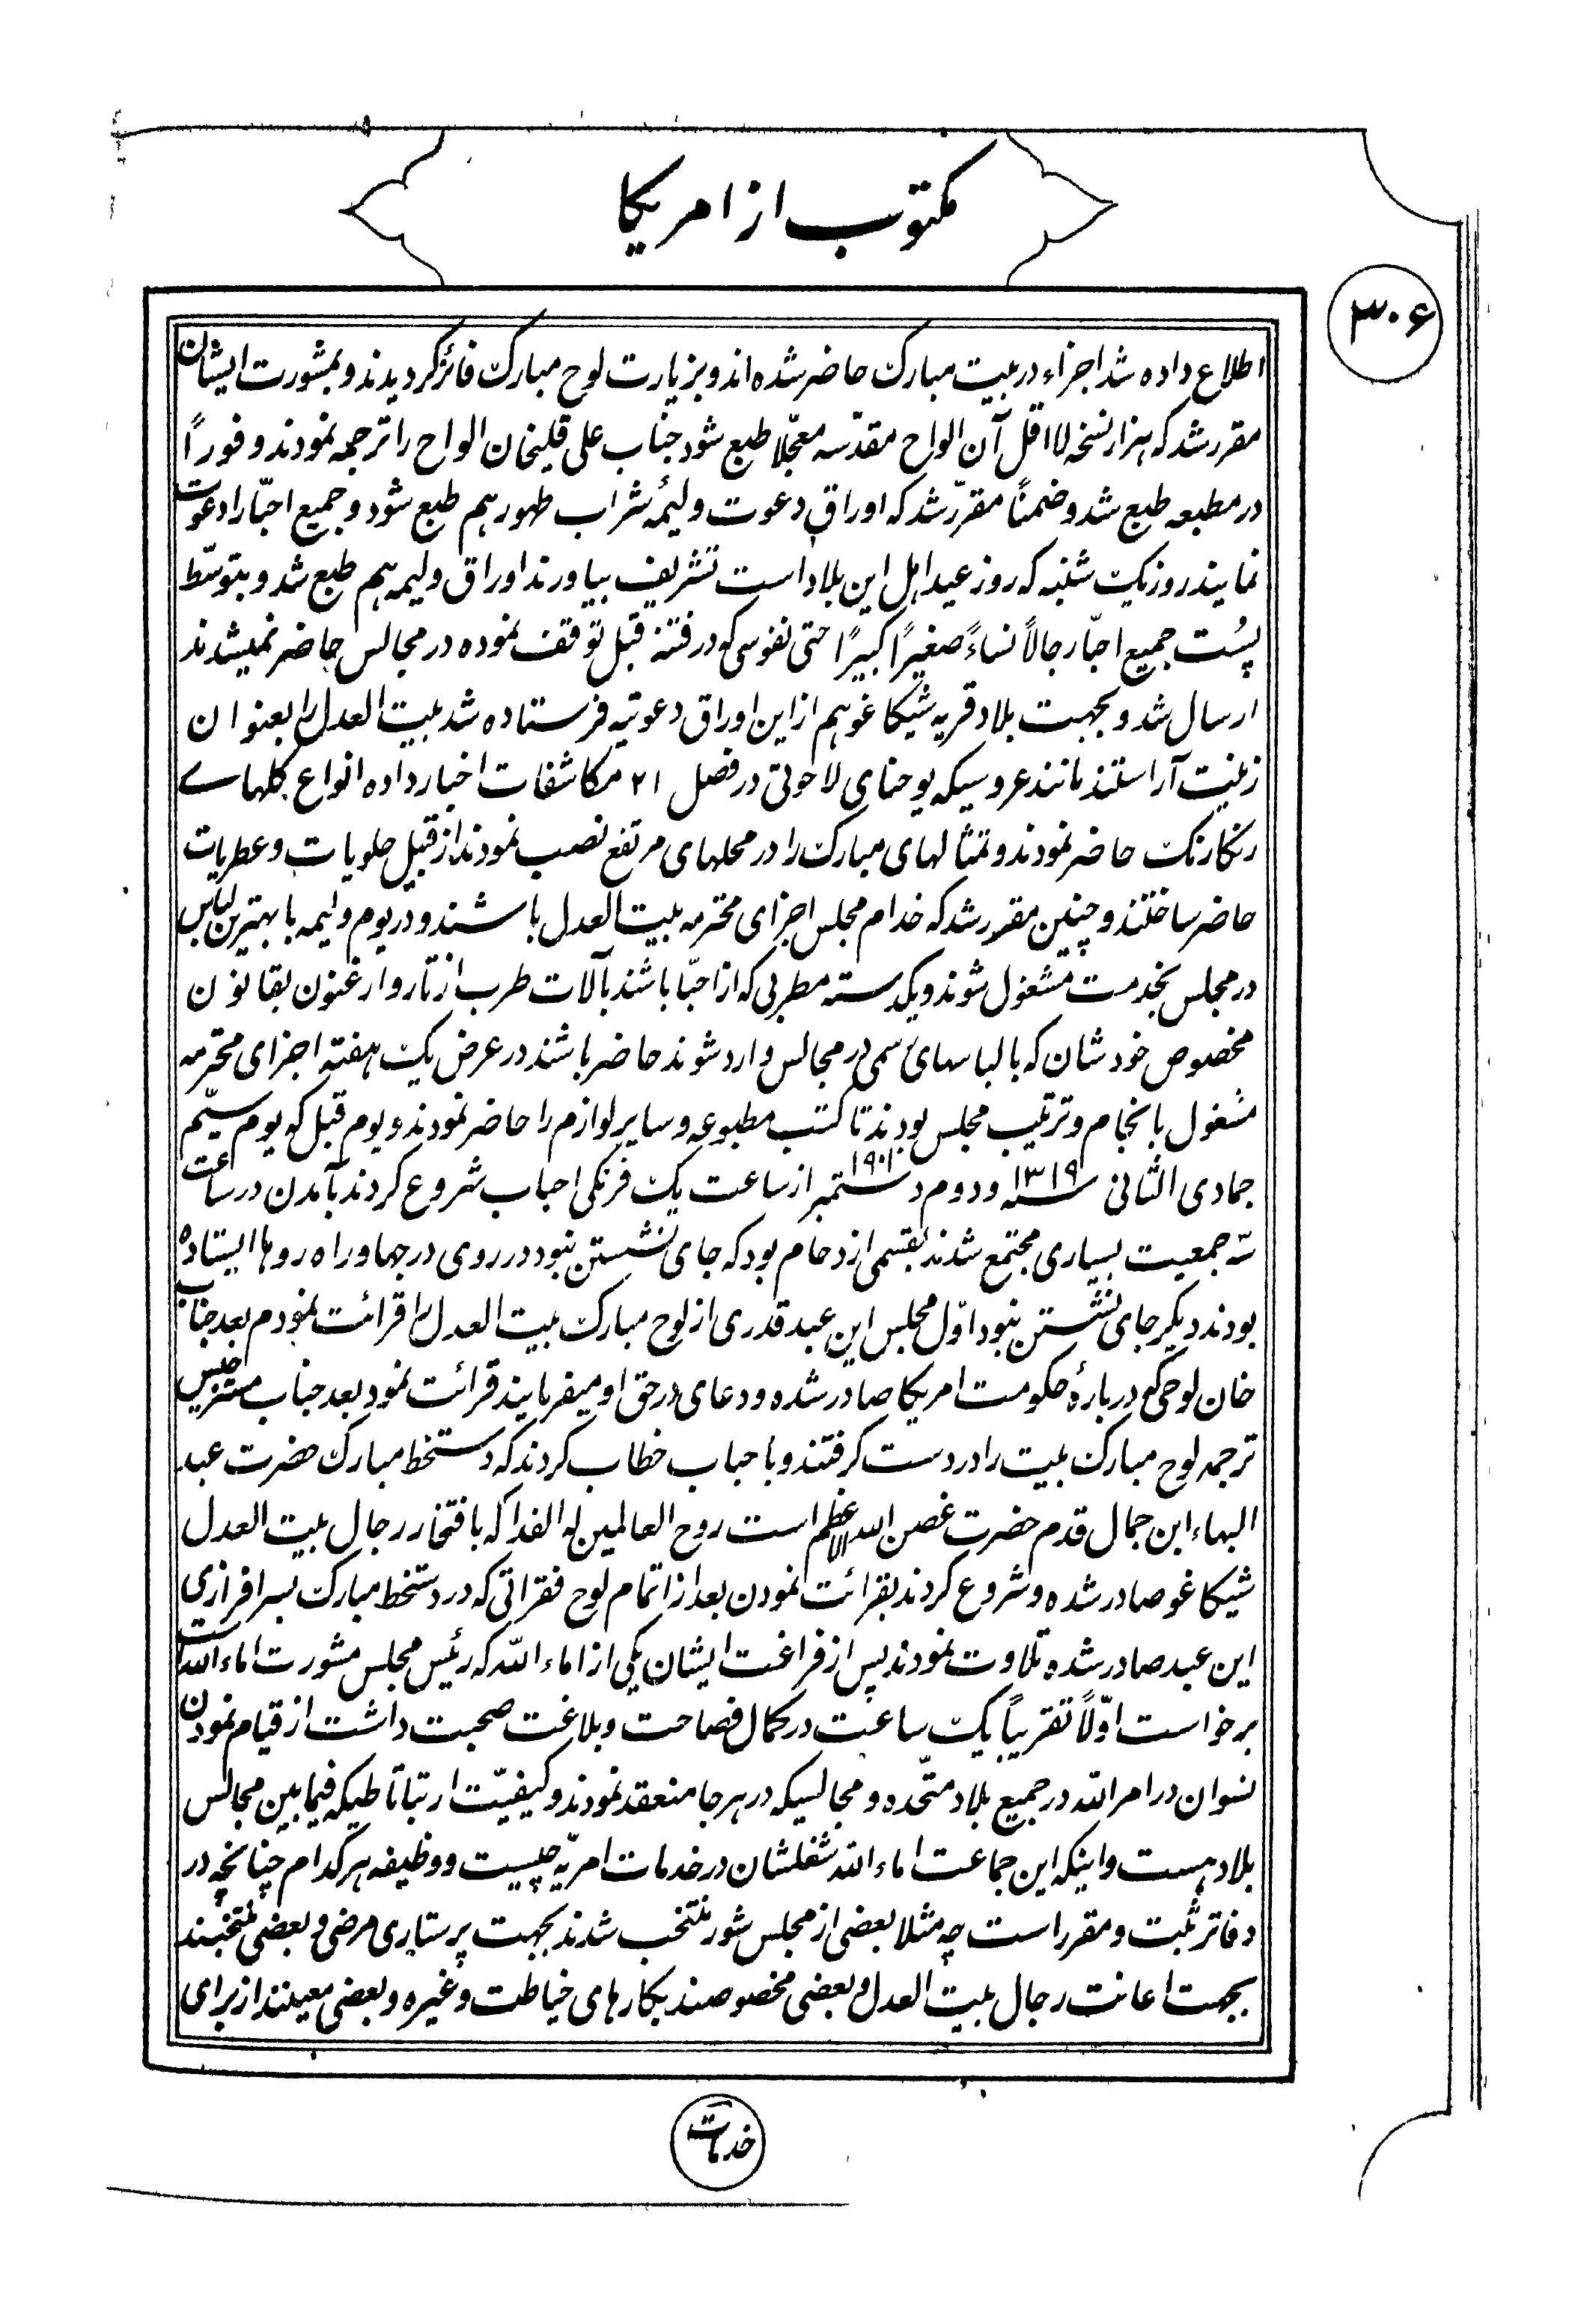 مکتوب از امریکا
۳۰۶
اطلاع داده شد اجزاء در بیت مبارک حاضر شده‌اند و بزیارت لوح مبارک فائز کردیدند و بمشورت ایشان
مقرر شد که هزار نسخه لااقل آن الواح مقدّسه معجّلا طبع شود جناب علی قلیخان الواح را ترجمه نمودند و فوراً
در مطبعه طبع شد و ضمناً مقرّر شد که اوراق دعوت ولیمهٔ شراب طهور هم طبع شود و جمیع احبّا را دعوت
نمایند روز یک شنبه که روز عید اهل این بلاد است تشریف بیاورند اوراق ولیمه هم طبع شد و بتوسّط
پُست جمیع احبّا رجالاً نساءً صغیراً کبیراً حتی نفوسی که در فتنه قبل توقف نموده در مجالس حاضر نمیشدند
ارسال شد و بجهت بلاد قریه شیکاغو هم از این اوراق دعوتیه فرستاده شد بیت العدل را بعنوان
زینت آراستند مانند عروسیکه یوحنای لاهوتی در فصل ۲۱ مکاشفات اخبار داده انواع کلهای
رنکارنک حاضر نمودند و تمثالهای مبارک را در محلهای مرتفع نصب نمودند از قبیل حلویات و عطریات
حاضر ساختند و چنین مقرر شد که خدام مجلس اجزای محترمه بیت العدل باشند و در یوم ولیمه با بهترین لباس
در مجلس بخدمت مشغول شوند و یکدسته مطربی که از احبّا باشند بآلات طرب از تار و ارغنون بقانون
مخصوص خودشان که بالباسهای رسمی در مجالس وارد شوند حاضر باشند در عرض یک هفته اجزای محترمه
مشغول بانجام و ترتیب مجلس بودند تا کتب مطبوعه و سایر لوازم را حاضر نمودند و یوم قبل که یوم سیّم
جمادی الثانی سنه ۱۳۱۹ و دوم ستمبر ۱۹۰۱ از ساعت یک فرنکی احباب شروع کردند بآمدن در ساعت
سه جمعیت بسیاری مجتمع شدند بقسمی ازدحام بود که جای نشستن نبود در روی درجها و راه روها ایستاده
بودند دیکر جای نشستن نبود اوّل مجلس این عبد قدری از لوح مبارک بیت العدل را قرائت نمودم بعد جناب
خان لوحی که دربارهٔ حکومت امریکا صادر شده و دعای در حق او میفرمایند قرائت نمود بعد جناب مستر چیس
ترجمه لوح مبارک بیت را در دست کرفتند و باحباب خطاب کردند که دستخط مبارک حضرت عبد
البهاء ابن جمال قدم حضرت غصن الله الاعظم است روح العالمین له الفدا که بافتخار رجال بیت العدل
شیکاغو صادر شده و شروع کردند بقرائت نمودن بعد از اتمام لوح فقراتی که در دستخط مبارک بسرافرازی
این عبد صادر شده تلاوت نمودند پس از فراغت ایشان یکی از اماءالله که رئیس مجلس مشورت اماءالله است
برخواست اوّلاً تقریباً یک ساعت در کمال فصاحت و بلاغت صحبت داشت از قیام نمودن
نسوان در امرالله در جمیع بلاد متّحده و مجالسیکه در هر جا منعقد نمودند و کیفیّت ارتباطیکه فیمابین مجالس
بلاد هست و اینکه این جماعت اماءالله شغلشان در خدمات امریّه چیست و وظیفه هر کدام چنانچه در
دفاتر ثبت و مقرر است چه مثلا بعضی از مجلس شور منتخب شدند بجهت پرستاری مرضی و بعضی منتخبند
بجهت اعانت رجال بیت العدل و بعضی مخصوصند بکارهای خیاطت و غیره و بعضی معینند از برای
خدمات